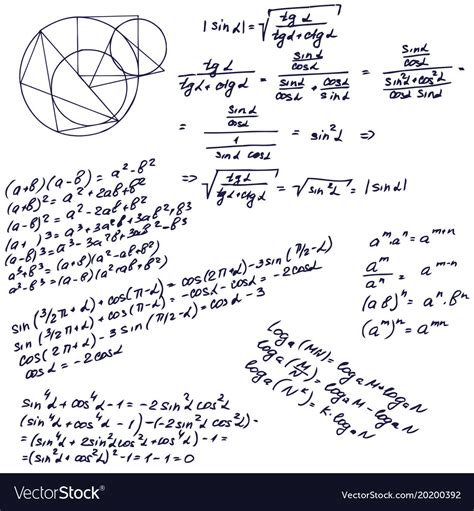 |sinα| = √(tgα / (tgα + ctgα))
tgα / (tgα + ctgα) = (sinα/cosα) / (sinα/cosα + cosα/sinα) = (sinα/cosα) / ((sin²α + cos²α)/(cosα sinα)) =
= (sinα/cosα) / (1/(sinα cosα)) = sin²α =>
=> √(tgα / (tgα + ctgα)) = √(sin²α) = |sinα|
(a+b)(a-b) = a²-b²
(a+b)² = a²+2ab+b²
(a-b)² = a²-2ab+b²
(a+ )³ = a³+3a²b+3ab²+b³
(a-b)³ = a³-3a²b+3ab²-b³
a³+b³ = (a+b)(a²-ab+b²)
a³-b³ = (a-b)(a²+ab+b²)
aᵐ·aⁿ = aᵐ⁺ⁿ
aᵐ/aⁿ = aᵐ⁻ⁿ
(ab)ⁿ = aⁿ·bⁿ
(aᵐ)ⁿ = aᵐⁿ
sin(3/2π+α)+cos(π-α) = cos(2π+α)-3sin(π/2-α)
sin(3/2π+α)+cos(π-α) = -cosα-cosα = -2cosα
cos(2π+α)-3sin(π/2-α) = cosα-3
cosα = -2cosα
logₐ(MN) = logₐM+logₐN
logₐ(M/N) = logₐM-logₐN
logₐ(Nᴷ) = K·logₐN
sin⁴α+cos⁴α-1 = -2sin²αcos²α
(sin⁴α+cos⁴α-1)-(-2sin²αcos²α) =
= (sin⁴α+2sin²αcos²α+cos⁴α)-1 =
= (sin²α+cos²α)²-1 = 1-1 = 0
VectorStock®
VectorStock.com/20200392